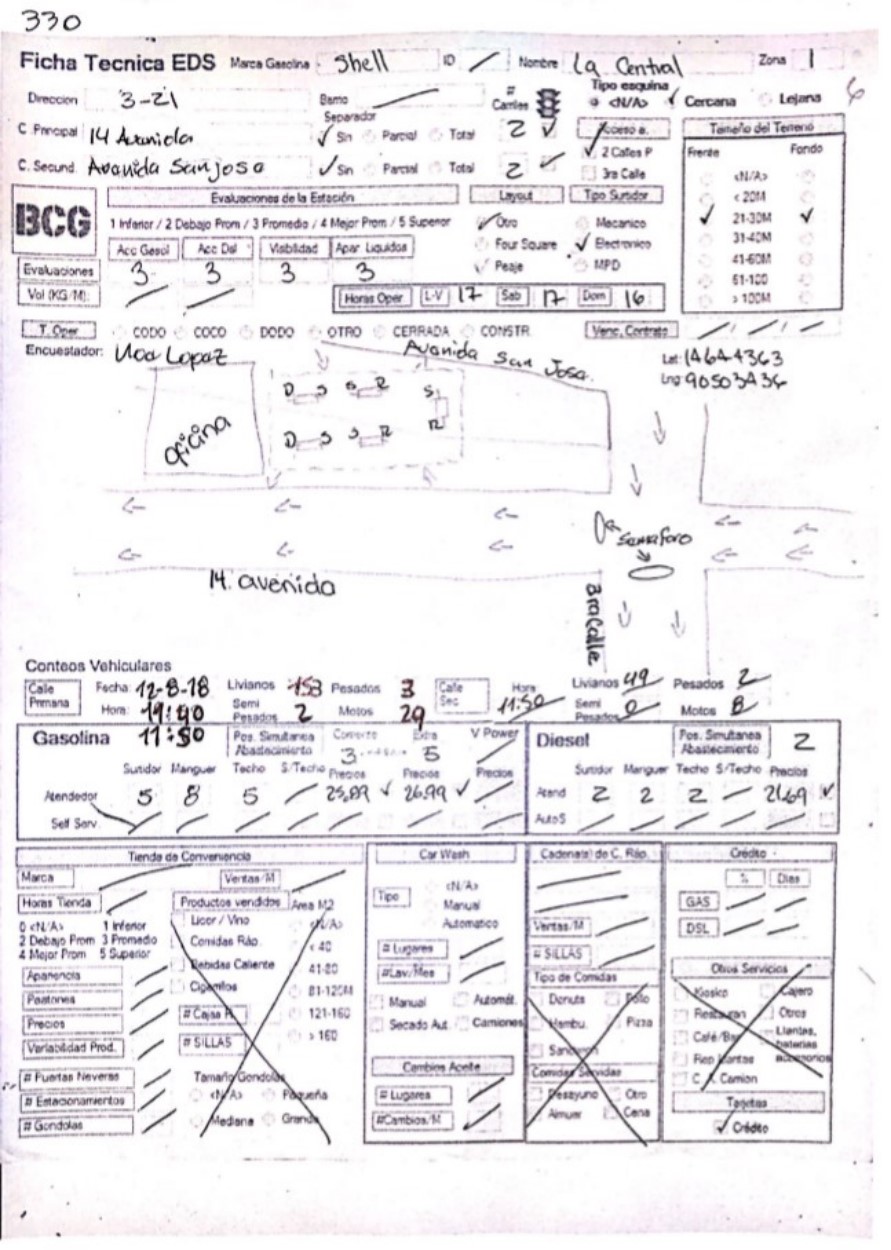 330
Ficha Tecnica EDS Marca Gasolina Shell ID / Nombre La Central Zona 1
Direccion 3-21 Barrio # Carriles Tipo esquina <N/A> Cercana Lejana 6
Separador
C. Principal 14 Avenida Sin Parcial Total 2 Acceso a: Tamaño del Terreno
C. Secund. Avenida San Jose Sin Parcial Total 2 2 Calles P Frente Fondo
3ra Calle <N/A>
BCG Evaluaciones de la Estación Layout Tipo Surtidor < 20M
1 Inferior / 2 Debajo Prom / 3 Promedio / 4 Mejor Prom / 5 Superior Otro Mecanico 21-30M
Acc Gasol Acc Dsl Visbilidad Apar Liquidos Four Square Electronico 31-40M
Evaluaciones 3 3 3 3 Peaje MPD 41-60M
61-100
Vol (KG/M): Horas Oper L-V 17 Sab 17 Dom 16 > 100M
T. Oper CODO COCO DODO OTRO CERRADA CONSTR. Venc. Contrato / / /
Encuestador: Lopez Avenida San Jose. Lat: 14644363
Lng: 90503436
D S S R S
Oficina
D S S R R
Semaforo
14. avenida
3ra Calle
Conteos Vehiculares
Calle Primaria Fecha: 12-8-18 Livianos 153 Pesados 3 Calle Sec Hora 11:50 Livianos 49 Pesados 2
Hora: 11:50 Semi Pesados 2 Motos 29 Semi Pesados 0 Motos 8
Gasolina Pos. Simultanea Abastecimiento 3 Extra 5 V Power Diesel Pos. Simultanea Abastecimiento 2
Surtidor Manguer Techo S/Techo Precios Precios Precios Surtidor Manguer Techo S/Techo Precios
Atendedor 5 8 5 / 25.89 26.99 / Atend 2 2 2 / 21.69
Self Serv. Auto S
Tienda de Conveniencia Car Wash Cadena(s) de C. Ráp. Crédito
Marca Ventas/M <N/A> % Dias
Horas Tienda Productos vendidos Area M2 Tipo Manual GAS
0 <N/A> 1 Inferior Licor / Vino <N/A> Automatico Ventas/M DSL
2 Debajo Prom 3 Promedio Comidas Ráp. < 40 # Lugares # SILLAS
4 Mejor Prom 5 Superior Bebidas Caliente 41-80 #Lav/Mes Tipo de Comidas Otros Servicios
Apariencia Cigarrillos 81-120M Manual Automát. Donuts Pollo Kiosko Cajero
Peatones # Cajas R. 121-160 Secado Aut. Camiones Hambu. Pizza Restauran Otros
Precios # SILLAS > 160 Sandwich Café/Bar Llantas, baterias accesorios
Variabilidad Prod. Cambios Aceite Comidas Servidas Rep Llantas
# Puertas Neveras Tamaño Gondolas # Lugares Desayuno Otro C. A. Camion
# Estacionamientos <N/A> Pequeña #Cambios/M Almuer Cena Tarjetas
# Gondolas Mediana Grande Crédito